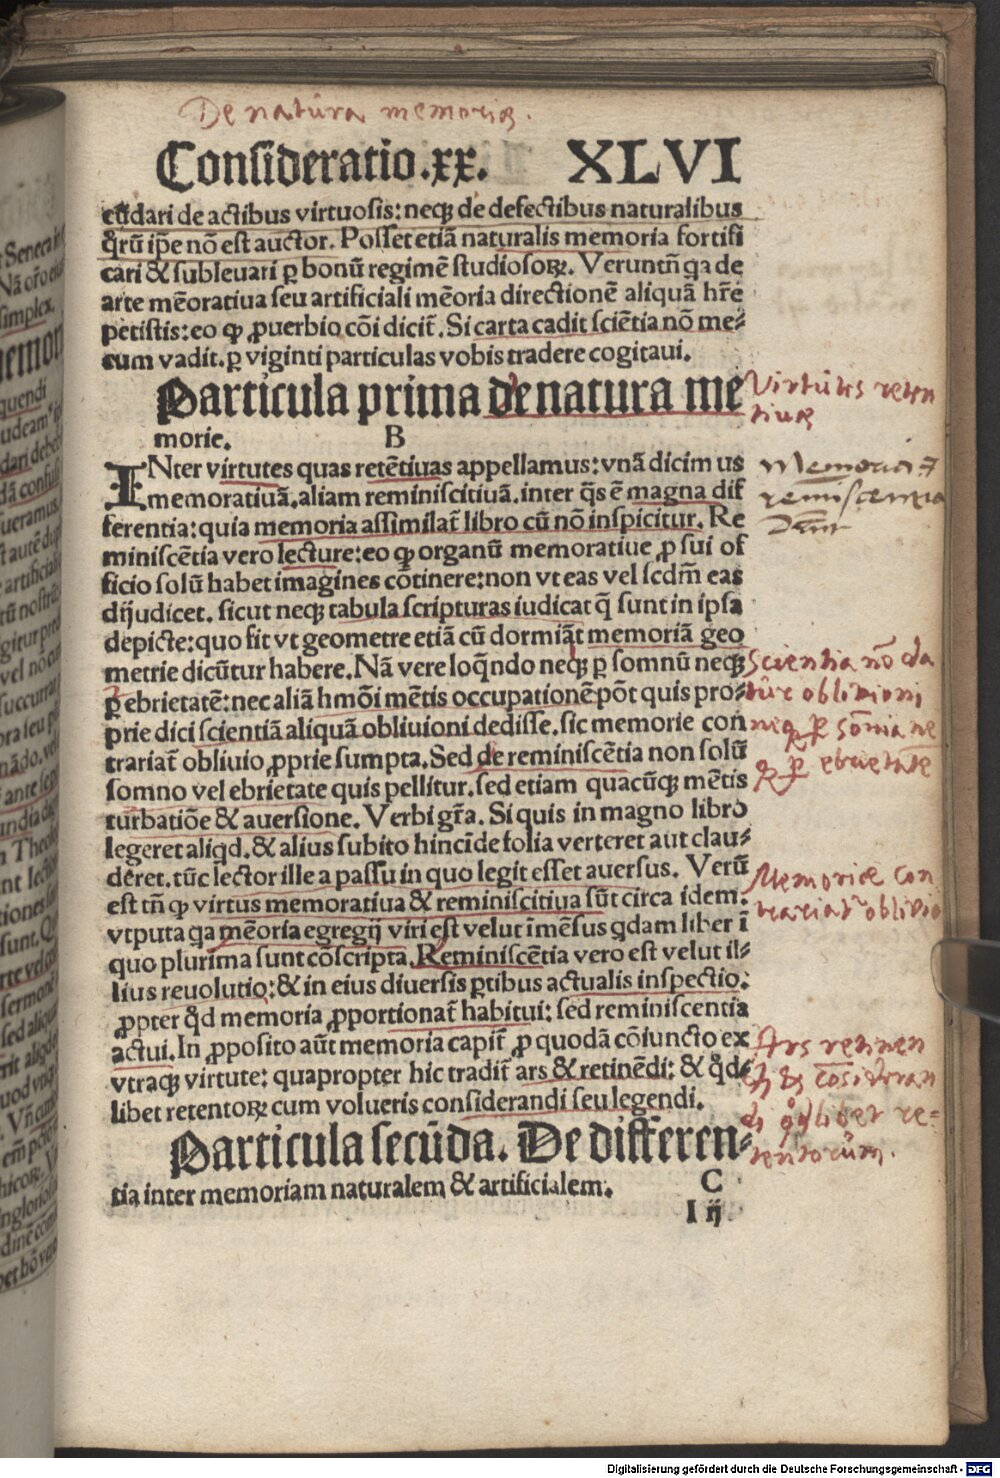 De natura memoriæ.
Consideratio.xx. XLVI
cũdari de actibus virtuosis: neqꝫ de defectibus naturalibus
q̃rũ ip̃e nõ est auctor. Posset etiã naturalis memoria fortifi
cari & subleuari ꝑ bonũ regimẽ studiosoꝝ. Veruntñ qa de
arte mẽoratiua seu artificiali mẽoria directionẽ aliquã hr̃e
petistis: eo ꝙ ꝓuerbio cõi dicit̃. Si carta cadit sciẽtia nõ me⸗
cum vadit. ꝑ viginti particulas vobis tradere cogitaui.
Particula prima de natura me
morie. B
INter virtutes quas retẽtiuas appellamus: vnã dicimus
memoratiuã. aliam reminiscitiuã. inter q̃s ẽ magna dif
ferentia: quia memoria assimilat̃ libro cũ nõ inspicitur. Re
miniscẽtia vero lecture: eo ꝙ organũ memoratiue ꝓ sui of
ficio solũ habet imagines cõtinere: non vt eas vel scdm̃ eas
dijudicet. sicut neqꝫ tabula scripturas iudicat q̃ sunt in ipsa
depicte: quo fit vt geometre etiã cũ dormiãt memoriã geo
metrie dicũtur habere. Nã vere loq̃ndo neqꝫ ꝑ somnũ neqꝫ
ꝑ ebrietatẽ: nec aliã hmõi mẽtis occupationẽ põt quis pro⸗
prie dici scientiã aliquã obliuioni dedisse. sic memorie con
trariat̃ obliuio ꝓprie sumpta. Sed de reminiscẽtia non solũ
somno vel ebrietate quis pellitur. sed etiam quacũqꝫ mẽtis
turbatiõe & auersione. Verbi gr̃a. Si quis in magno libro
legeret aliqd. & alius subito hincinde folia verteret aut clau⸗
deret. tũc lector ille a passu in quo legit esset auersus. Verũ
est tñ ꝙ virtus memoratiua & reminiscitiua sũt circa idem.
vtputa qa mẽoria egregij viri est velut imẽsus qdam liber ĩ
quo plurima sunt cõscripta. Reminiscẽtia vero est velut il⸗
lius reuolutio: & in eius diuersis ꝑtibus actualis inspectio:
ꝓpter q̃d memoria ꝓportionat̃ habitui: sed reminiscentia
actui. In ꝓposito aũt memoria capit̃ ꝓ quodã cõiuncto ex
vtraqꝫ virtute: quapropter hic tradit̃ ars & retinẽdi: & q̃d⸗
libet retentoꝝ cum volueris considerandi seu legendi.
Particula secũda. De differen⸗
tia inter memoriam naturalem & artificialem. C
I ij
Virtutes reten
tiuæ
Memoria
reminiscentia
Scientia nõ da
tur obliuioni
neqꝫ ꝑ sõnia ne
qꝫ ꝑ ebrietatẽ
Memoriæ con
trariat̃ obliuio
Ars retinen
di & cõsideran
di q̃dlibet re⸗
tentorũm.